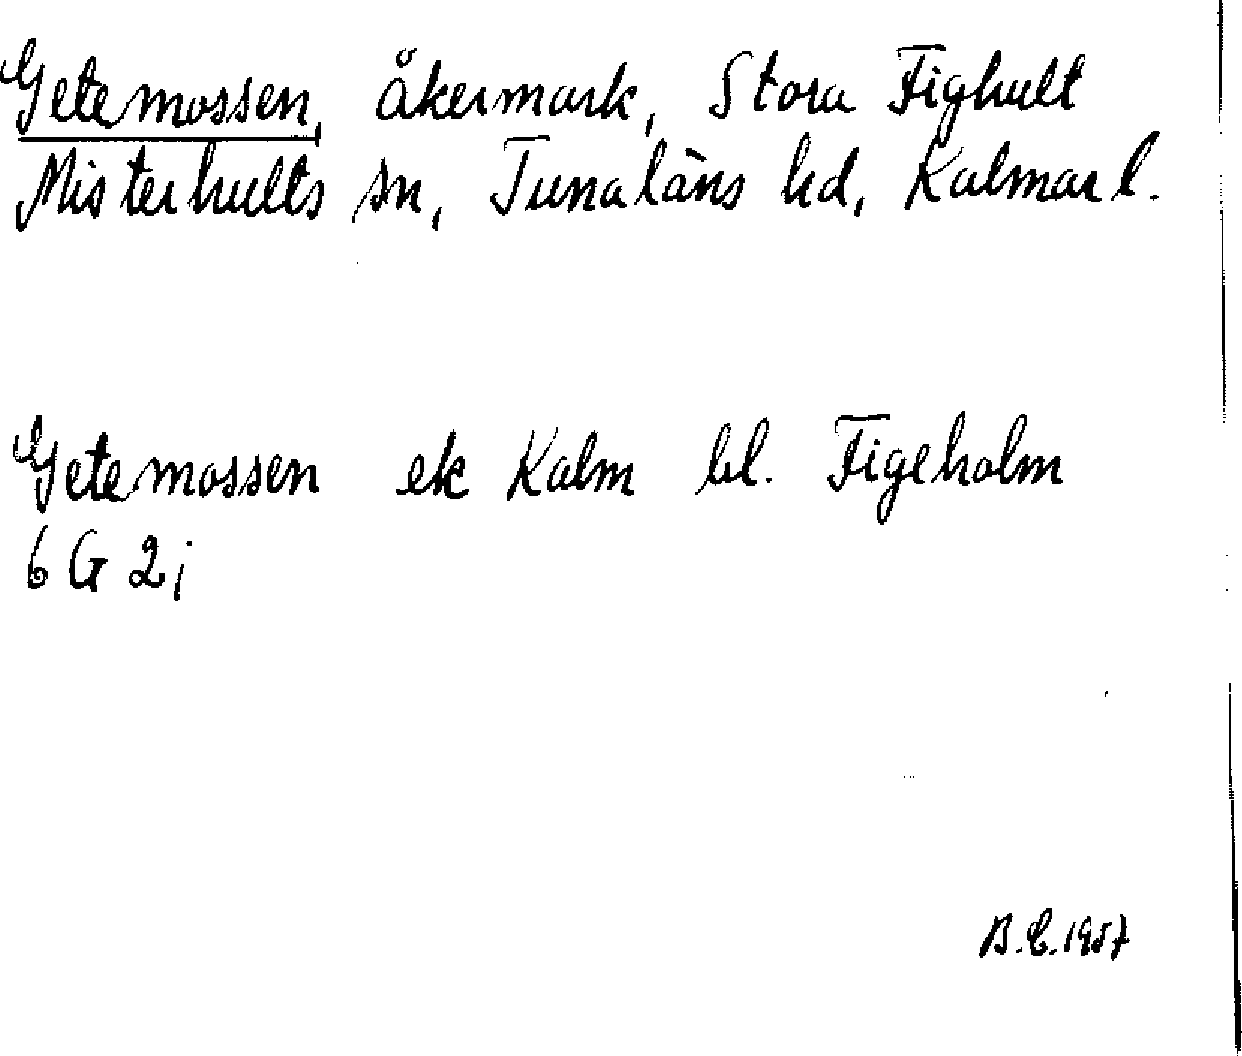 Getemossen, åkermark, Stora Fighult
Misterhults sn, Tunaläns hd, Kalmar l.
Getemossen ek Kalm bl. Figeholm
6 G 2 j
B.E. 1957